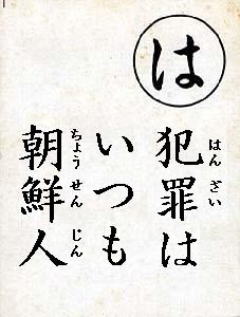 は
犯罪は
はんざい
いつも
朝鮮人
ちょうせんじん